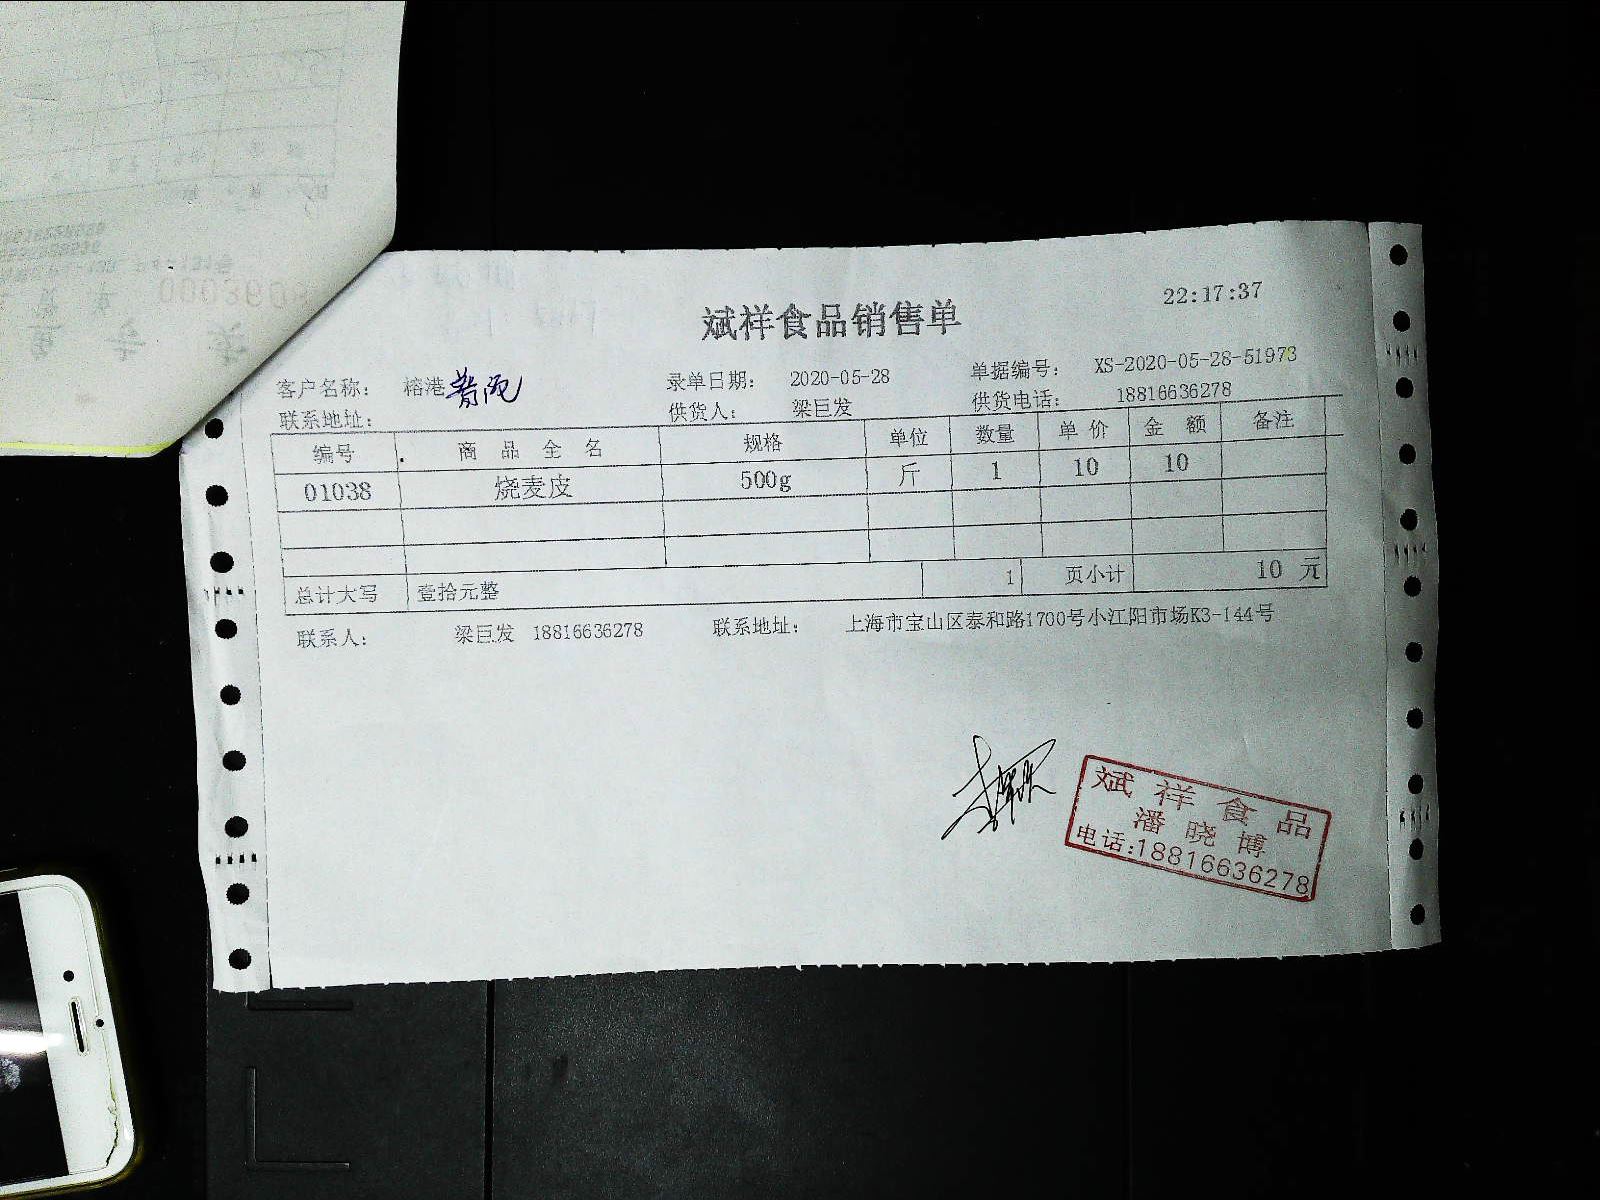 22:17:37
斌祥食品销售单
客户名称： 榕港 录单日期： 2020-05-28 单据编号： XS-2020-05-28-51973
联系地址： 供货人： 梁巨发 供货电话： 18816636278
编号 商品全名 规格 单位 数量 单价 金额 备注
01038 烧麦皮 500g 斤 1 10 10
总计大写 壹拾元整 1 页小计 10 元
联系人： 梁巨发 18816636278 联系地址： 上海市宝山区泰和路1700号小江阳市场K3-144号
斌祥食品
潘晓博
电话:18816636278